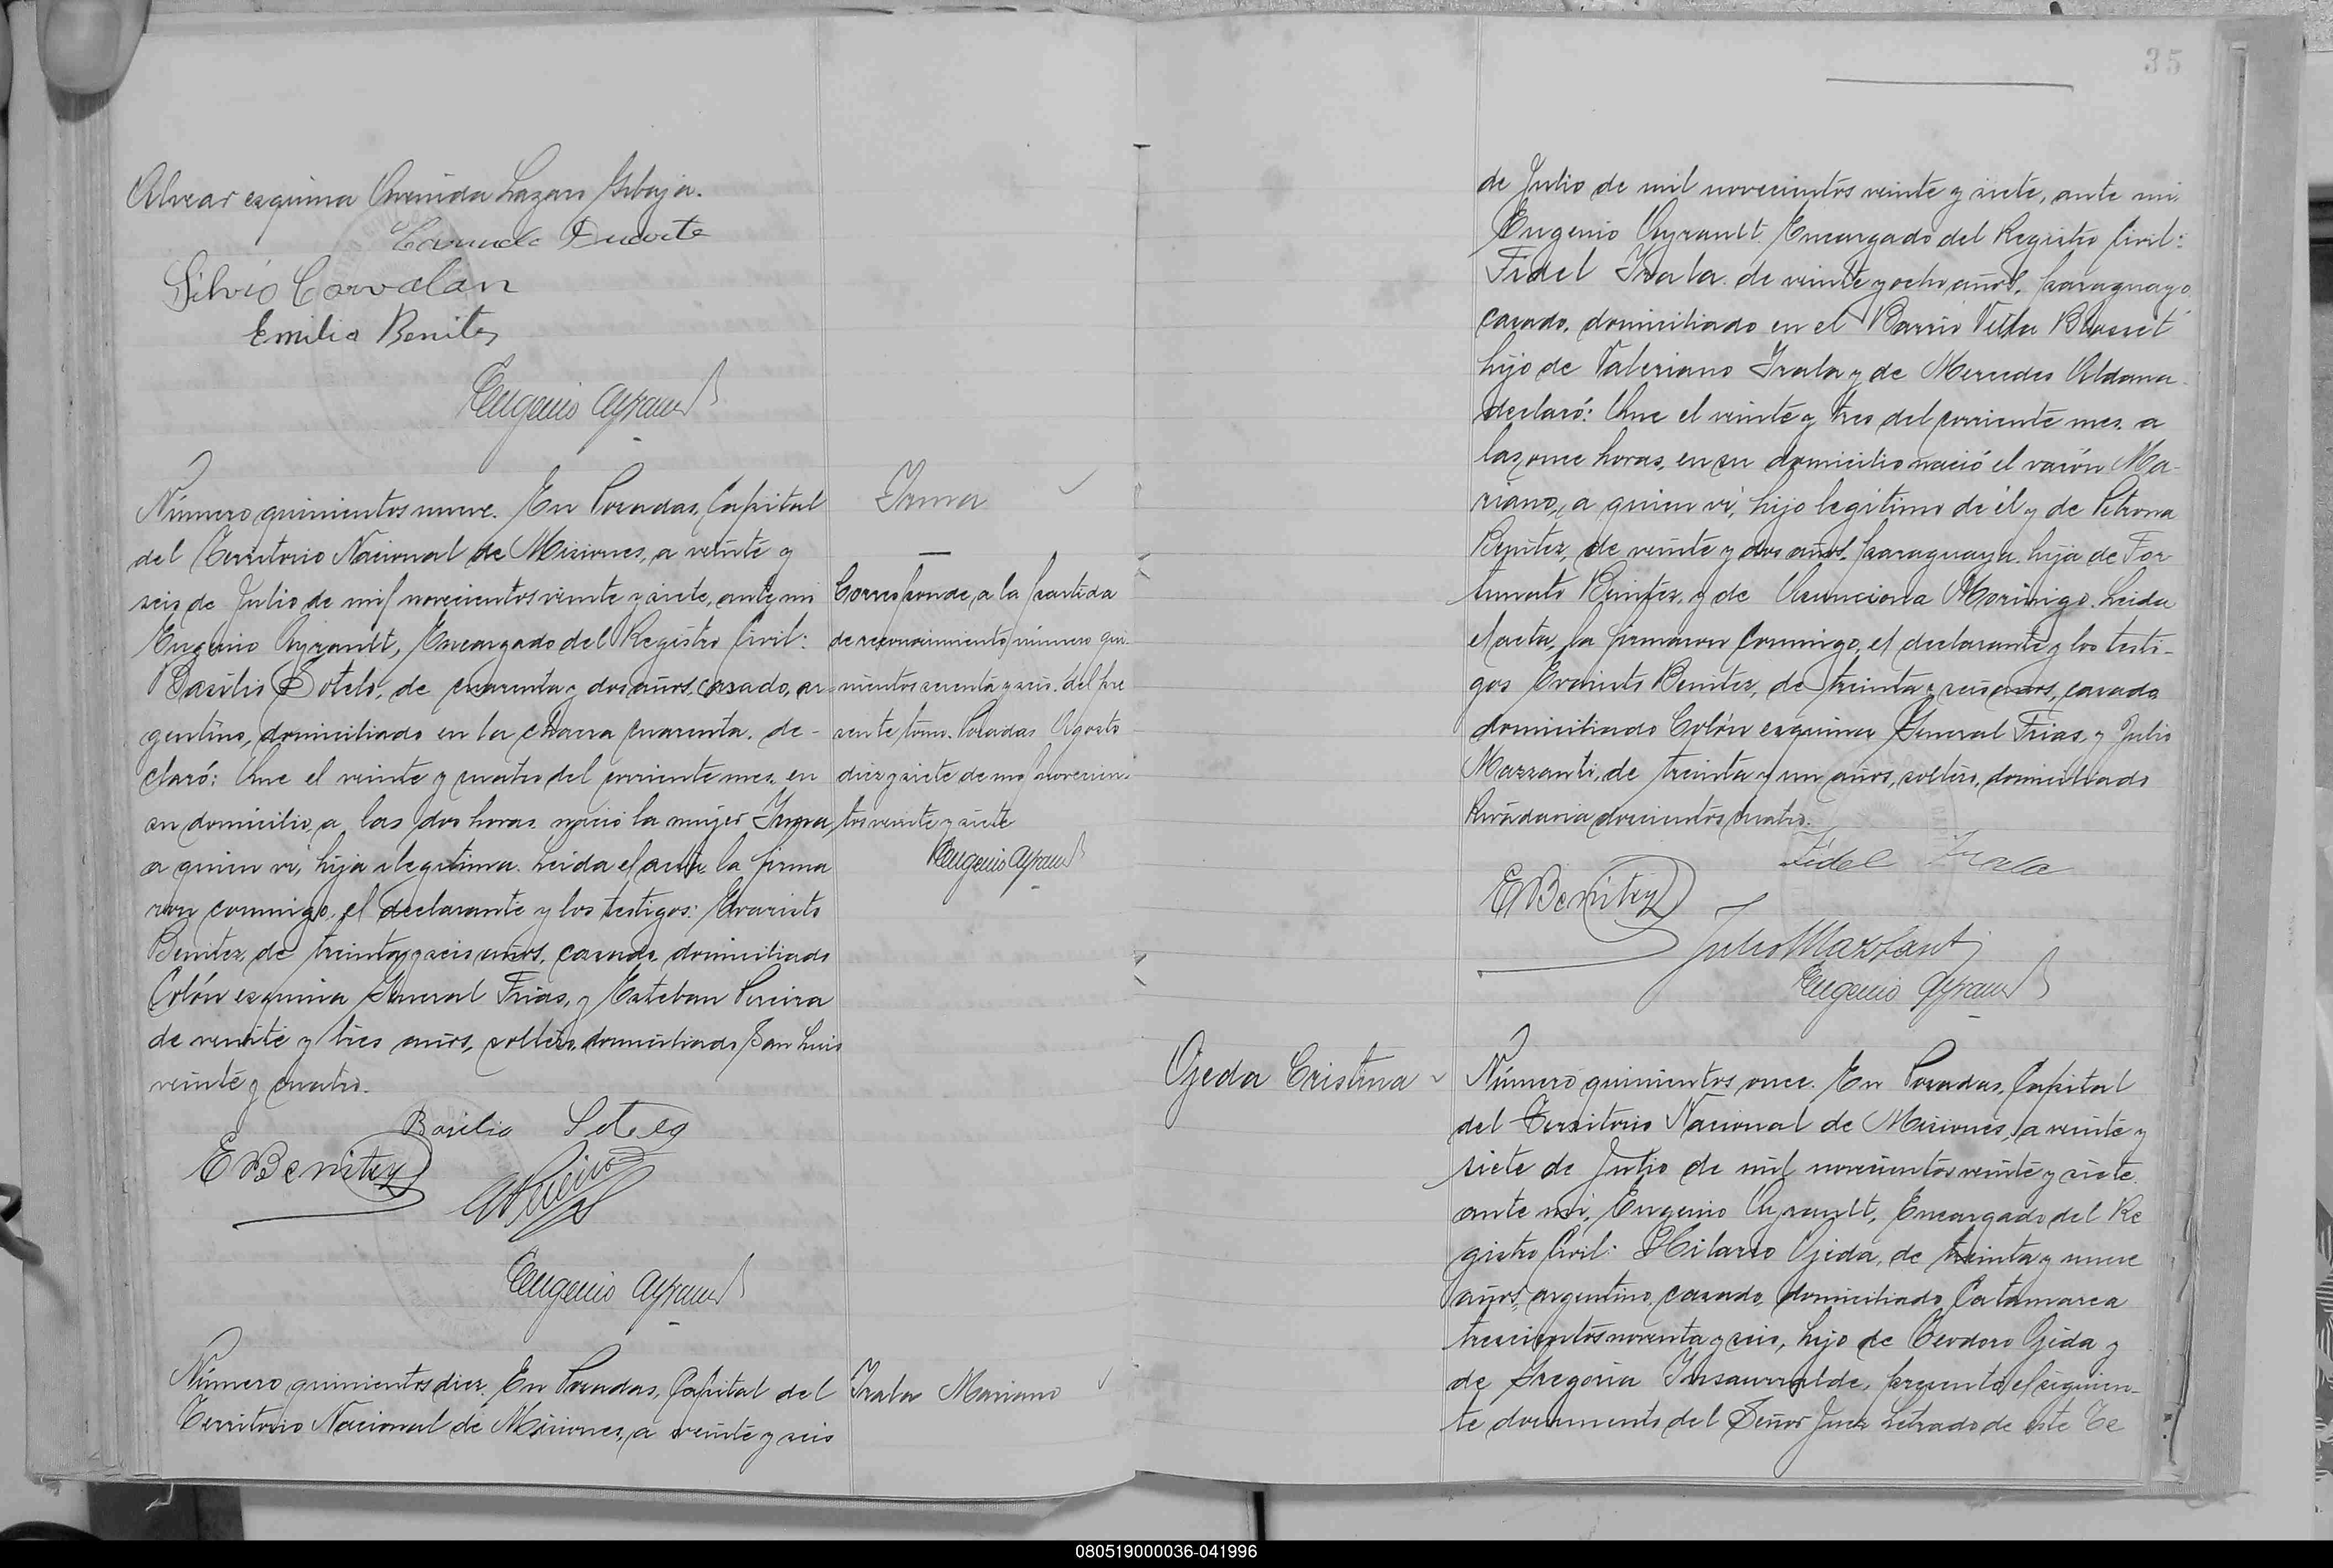 Alvear esquina Avenida Lazaro Gibaja.
Duarte
Silvio Corvalan
Emilio Benitez
Eugenio Ayrault
Número quinientos nueve. En Posadas, Capital
del Territorio Nacional de Misiones, a veinte y
seis de Julio de mil novecientos veinte y siete, ante mi
Eugenio Ayrault, Encargado del Registro Civil:
Basilio Sotelo, de cuarenta y dos años, casado, ar-
gentino, domiciliado en la chacra cuarenta. de-
claró: Que el veinte y cuatro del corriente mes, en
su domicilio, a las dos horas nació la mujer Irma,
a quien vi, hija ilegítima. Leida el acta la firma
ron conmigo, el declarante y los testigos: Evaristo
Benitez, de treinta y seis años, casado, domiciliado
Colón esquina General Frias, y Esteban Pereira
de veinte y tres años, soltero, domiciliado San Luis
veinte y cuatro.
Basilio Sotelo
E Benitez
Eugenio Ayrault
Número quinientos diez. En Posadas, Capital del
Territorio Nacional de Misiones, a veinte y seis
Irma
Corresponde, a la partida
de reconocimiento número qui-
nientos setenta y seis. del pre
sente tomo. Posadas Agosto
diez y siete de mil novecien-
tos veinte y siete
Eugenio Ayrault
Irala Mariano
35
de Julio de mil novecientos veinte y siete, ante mi,
Eugenio Ayrault. Encargado del Registro Civil:
Fidel Irala. de veinte y ocho años, paraguayo
casado, domiciliado en el Barrio Villa Blosset
hijo de Valeriano Irala y de Mercedes Aldana.
declaró: Que el veinte y tres del corriente mes. a
las once horas, en su domicilio nació el varón Ma-
riano, a quien vi, hijo legítimo de él y de Petrona
Benitez, de veinte y dos años, paraguaya. hija de For
tunato Benitez, y de Asunciona Morinigo. Leida
el acta, la firmaron conmigo, el declarante y los testi-
gos Evaristo Benitez, de treinta y seis años, casado
domiciliado Colón esquina General Frias, y Julio
Mazzanti, de treinta y un años, soltero, domiciliado
Rivadavia doscientos cuatro.
Fidel Irala
E Benitez
Julio Mazzanti
Eugenio Ayrault
Ojeda Cristina
Número quinientos once. En Posadas, Capital
del Territorio Nacional de Misiones, a veinte y
siete de Julio de mil novecientos veinte y siete.
ante mi, Eugenio Ayrault, Encargado del Re
gistro Civil: Hilario Ojeda, de treinta y nueve
años, argentino, casado, domiciliado Catamarca
trescientos noventa y seis, hijo de Teodoro Ojeda y
de Gregoria Insaurralde, presentó el siguien-
te documento del Señor Juez Letrado de este Te
080519000036-041996